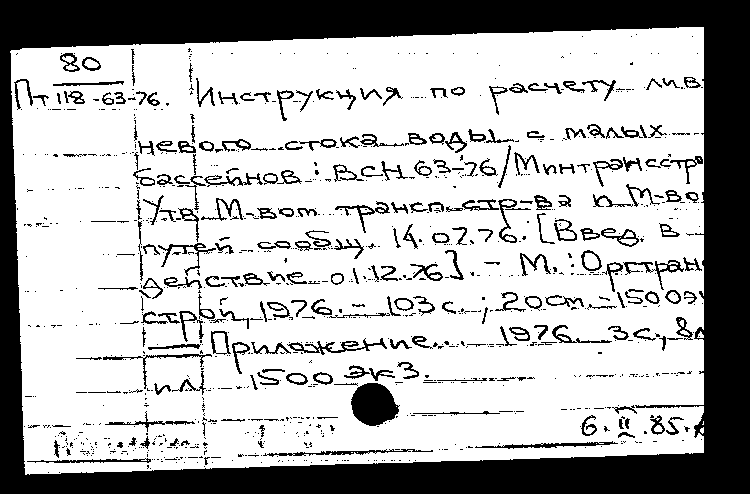 80
Пт 118-63-76. Инструкция по расчету лив-
невого стока воды с малых
бассейнов : ВСН 63-76/Минтрансстро
Утв. М-вом трансп. стр-ва и М-вом
путей сообщ. 14.07.76. [Введ. в
действие 01.12.76]. – М. : Оргтранс
строй, 1976. – 103 с. ; 20 см. – 1500 эк
— Приложение... 1976. 3 с., 8 л
ил 1500 экз.
6.II.85.